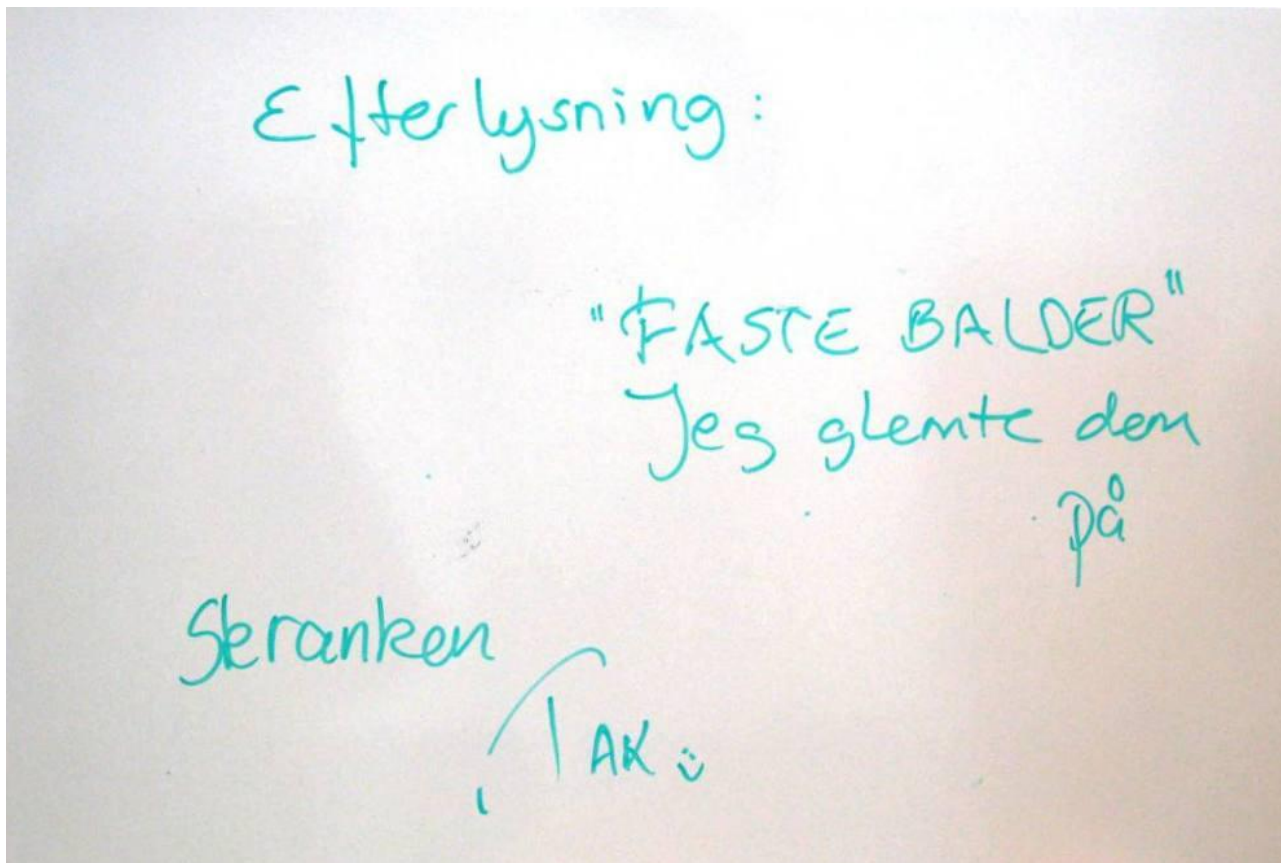 Efterlysning:
"FASTE BALDER"
Jeg glemte dem
på
Skranken
TAK ü